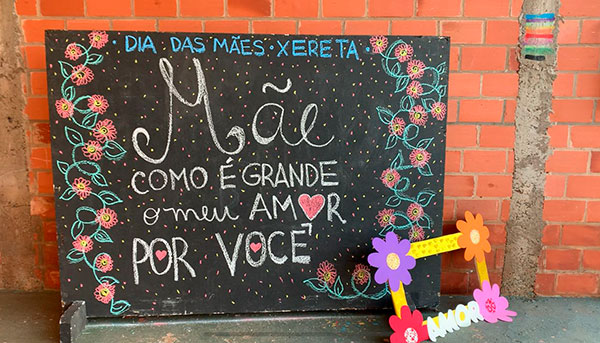 • DIA DAS MÃES • XERETA •
Mãe
COMO É GRANDE
o meu AMOR
POR VOCÊ
AMOR